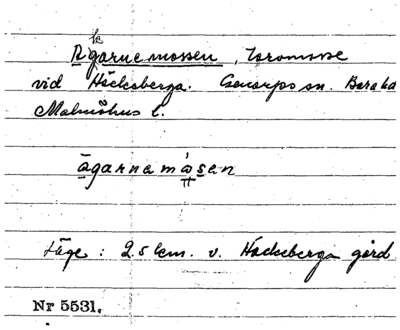 Ågarnemossen, Toromosse
vid Häckeberga. Genarps sn. Bara hd
Malmöhus l.
ågarnamåsen
Läge: 2.5 km. v. Häckeberga gård
Nr 5531.